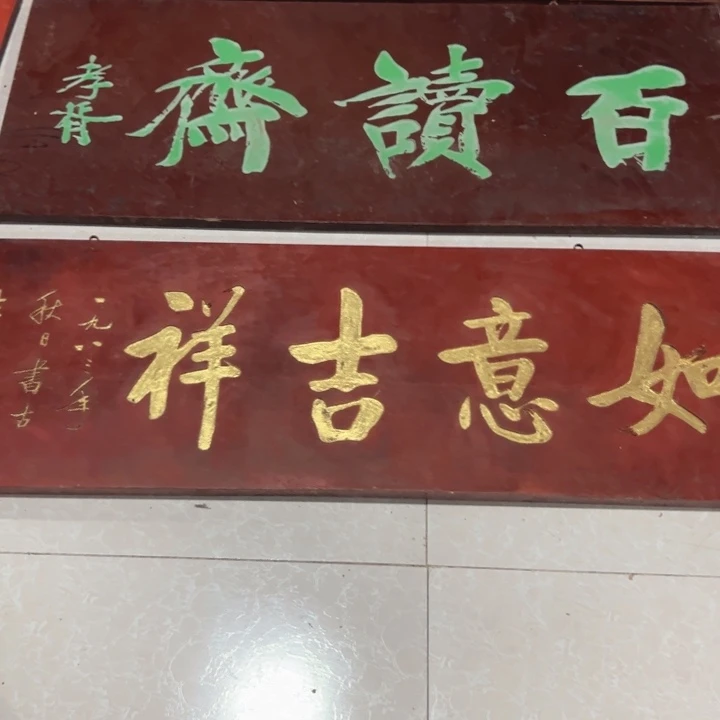 百讀齋
孝胥
如意吉祥
一九八三年
秋日書古